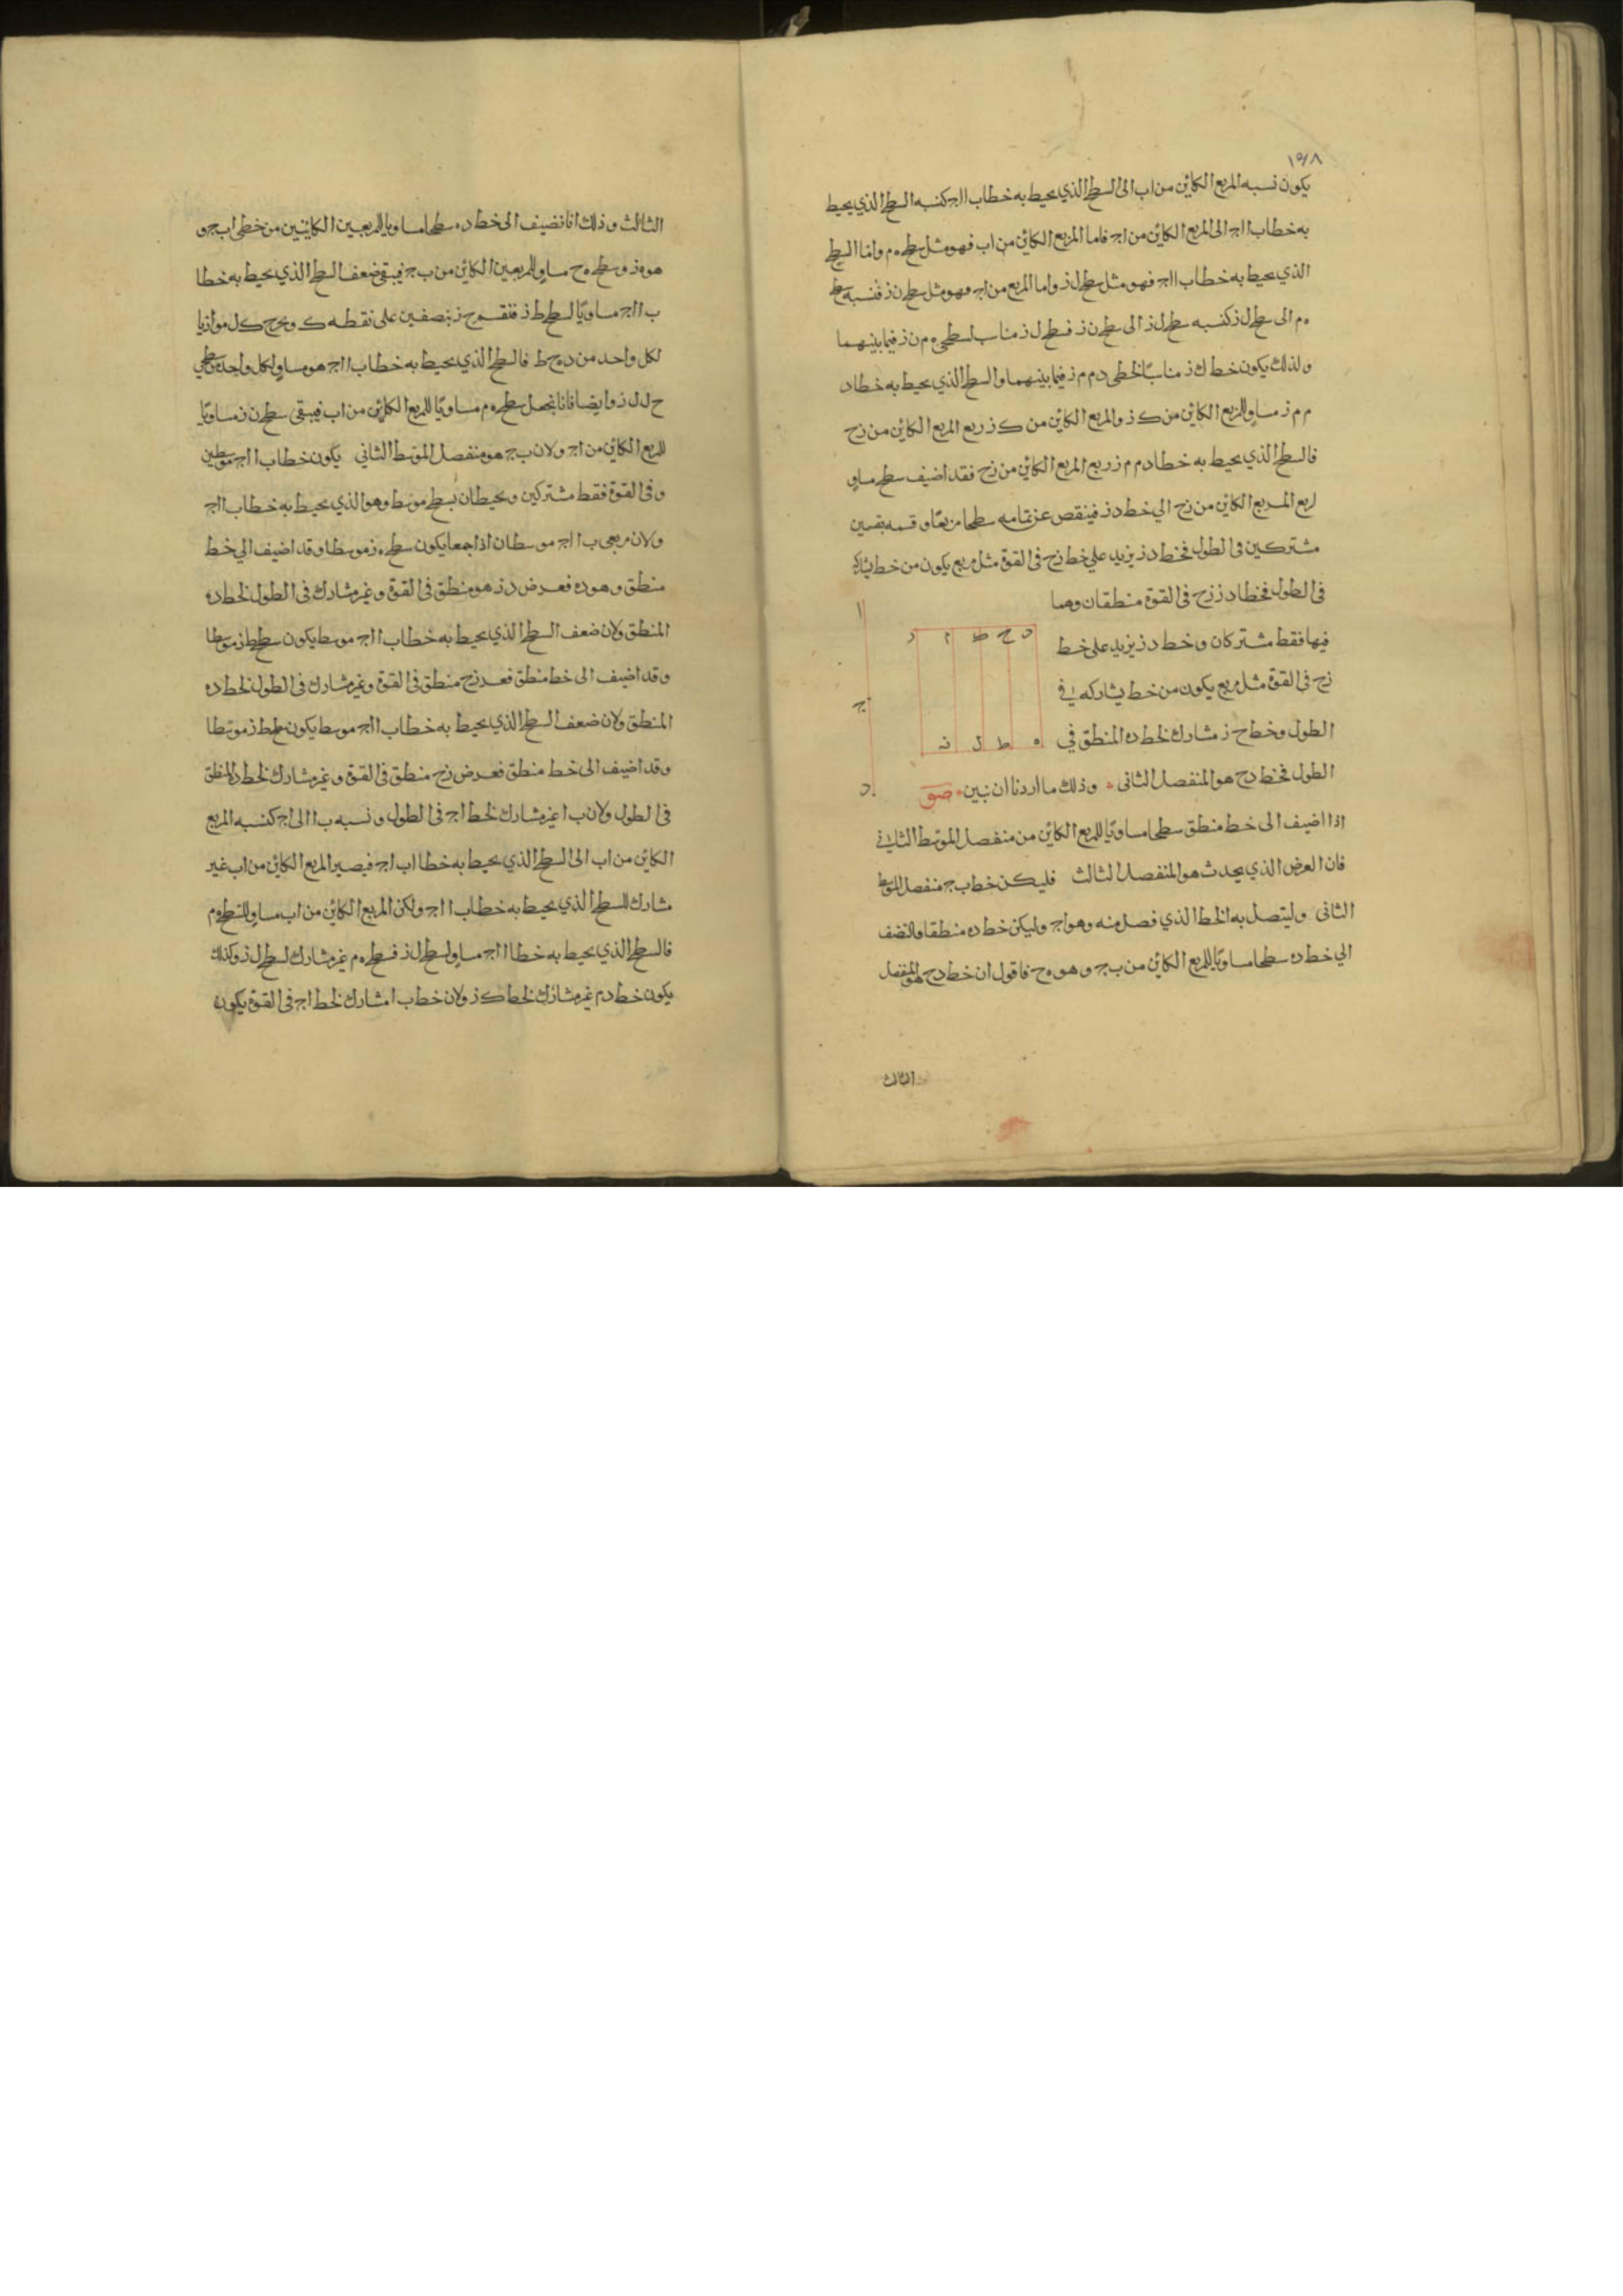 ١٥٨
يكون نسبه المربع الكاين من اب الى السطح الذي يحيط به خطا ب ا اج كنسبه السطح الذي يحيط
به خطا ب ا اج الى المربع الكاين من اج فاما المربع الكاين من اب فهو مثل سطح ه م واما السطح
الذي يحيط به خطا ب ا اج فهو مثل سطح ل ز واما المربع من اج فهو مثل سطح ن ز فنسبه سطح
ه م الى سطح ل ز كنسبه سطح ل ز الى سطح ن ز فسطح ل ز مناسب لسطحي ه م ن ز فيما بينهما
ولذلك يكون خط ك ز مناسبًا لخطى د م م ز فيما بينهما والسطح الذي يحيط به خطا د
م م ز مساوٍ للمربع الكاين من ك ز والمربع الكاين من ك ز ربع المربع الكاين من ز ح
فالسطح الذي يحيط به خطا د م م ز ربع المربع الكاين من ز ح فقد اضيف سطح مساوٍ
لربع المربع الكاين من ز ح الي خط د ز فينقص عن تمامه سطحا مربعًا وقسمه بقسمين
مشتركين فى الطول فخط د ز يزيد علي خط ز ح فى القوة مثل مربع يكون من خط يشاركه
فى الطول فخطا د ز ز ح فى القوة منطقان وهما
فيها فقط مشتركان وخط د ز يزيد على خط
ز ح فى القوة مثل مربع يكون من خط يشاركه في
الطول وخط ح ز مشارك لخط د ه المنطق في
الطول فخط د ح هو المنفصل الثانى وذلك ما اردنا ان نبين صو
د ا ط ح ه
ن ل ط ه
ا
ج
د
اذا اضيف الى خط منطق سطحا مساويًا للمربع الكاين من منفصل الموسط الثاني
فان العرض الذي يحدث هو المنفصل الثالث فليكن خط ب ج منفصل الموسط
الثانى وليتصل به الخط الذي فصل منه وهو اج وليكن خط د ه منطقا ولنضف
الي خط د ه سطحا مساويًا للمربع الكاين من ب ج وهو ه ح فاقول ان خط د ح هو المنفصل
الثالث
الثالث وذلك انا نضيف الى خط د ه سطحا مساويا للمربعين الكاينين من خطى اب ج و
هو ه ز وسطح ه ح مساوٍ للمربعين الكاين من ب ج فيبقى ضعف السطح الذي يحيط به خطا
ب ا اج مساويًا لسطح ط ز فنقسم ح ز بنصفين على نقطه ك ونخرج ك ل موازيا
لكل واحد من د ه ح ط فالسطح الذي يحيط به خطا ب ا اج هو مساوٍ لكل واحد من سطحي
ح ل ل ز وايضا فانا نجعل سطح ه م مساويًا للمربع الكاين من اب فيبقى سطح ن ز مساويًا
للمربع الكاين من اج ولان ب ج هو منفصل الموسط الثاني يكون خطا ب ا اج موسطين
وفى القوة فقط مشتركين ويحيطان بسطح موسط وهو الذي يحيط به خطا ب ا اج
ولان مربعى ب ا اج موسطان اذا جمعا يكون سطح ه ز موسطا وقد اضيف الي خط
منطق وهو د ه فعرض د ز هو منطق فى القوة وغير مشارك فى الطول لخط د ه
المنطق ولان ضعف السطح الذي يحيط به خطا ب ا اج موسط يكون سطح ط ز موسطا
وقد اضيف الى خط منطق فعرض ز ح منطق فى القوة وغير مشارك فى الطول لخط د ه
المنطق ولان ضعف السطح الذي يحيط به خطا ب ا اج موسط يكون سطح ط ز موسطا
وقد اضيف الى خط منطق فعرض ز ح منطق فى القوة وغير مشارك لخط د ه المنطق
فى الطول ولان ب ا غير مشارك لخط اج فى الطول ونسبه ب ا الى اج كنسبه المربع
الكاين من اب الى السطح الذي يحيط به خطا اب اج فيصير المربع الكاين من اب غير
مشارك للسطح الذي يحيط به خطا ب ا اج ولكن المربع الكاين من اب مساوٍ للسطح ه م
فالسطح الذي يحيط به خطا ا اج مساوٍ لسطح ل ز فسطح ه م غير مشارك لسطح ل ز وكذلك
يكون خط د م غير مشارك لخط ك ز ولان خط ب ا مشارك لخط اج فى القوة يكون